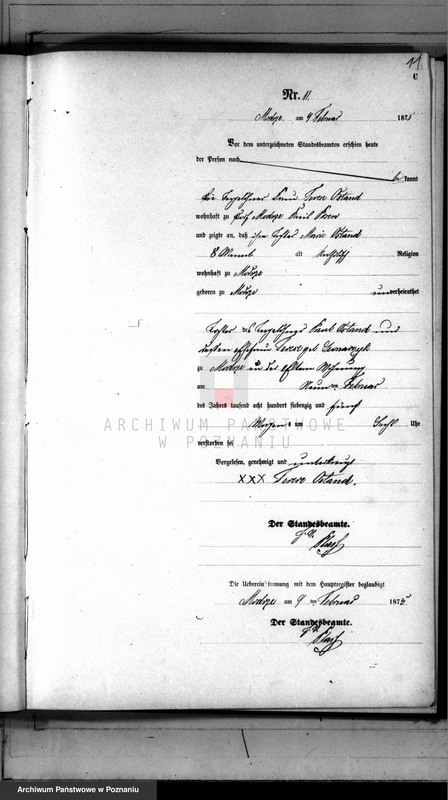 11
C
Nr. 11.
Modrze am 9 Februar 1875
Vor dem unterzeichneten Standesbeamten erschien heute
der Person nach
be kannt
die Frau Terese Ostand
wohnhaft zu Modrze Kreis Posen
und zeigte an, daß ihre Tochter Marie Ostand
8 Monat alt katholisch Religion
wohnhaft zu Modrze
geboren zu Modrze unverheirathet
Tochter des Ostand und
dessen Ehefrau Terese geb
zu Modrze in der Wohnung
am neunten Februar
des Jahres tausend acht hundert siebenzig und fünf
Morgens um sechs Uhr
verstorben sei
Vorgelesen, genehmigt und unterkreuzt
XXX Terese Ostand.
Der Standesbeamte.
Die Ueberein immung mit dem Hauptregister beglaubigt
Modrze am 9 ten Februar 1875
Der Standesbeamte.
ARCHIWUM PAŃSTWOWE
W POZNANIU
Archiwum Państwowe w Poznaniu